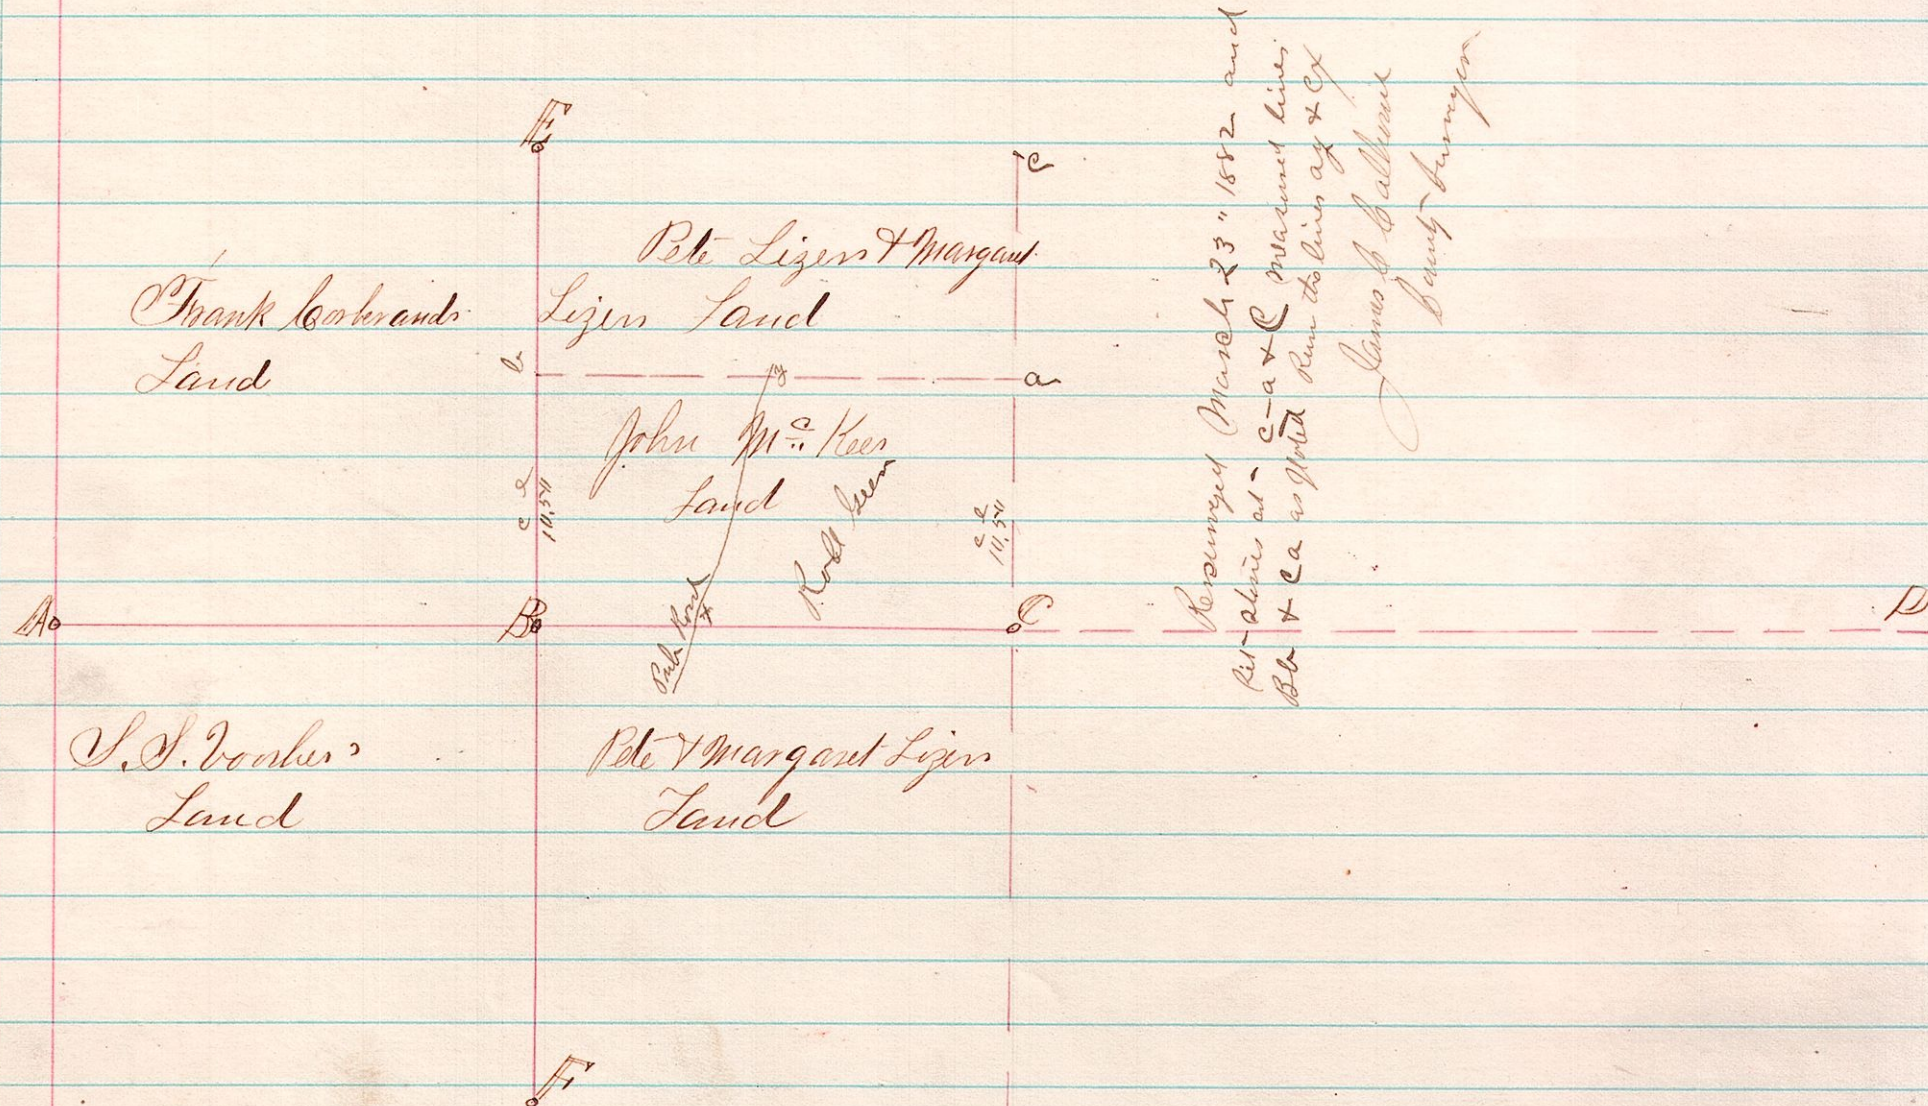 E
c
Pete Lizers & Margaret
Lizers Land
Frank
Land
b
y
a
John Mc Kees
Land
Robt Green
c l
10.54
c l
10.54
Pub Road
x
A
B
C
D
S. S. Voorhes
Land
Pete & Margaret Lizers
Land
F
Resurveyed March 23" 1882 and
set stones at c-a & C measured lines
Bb & Ca as Noted Run the lines ay & Cx
James C
County Surveyor